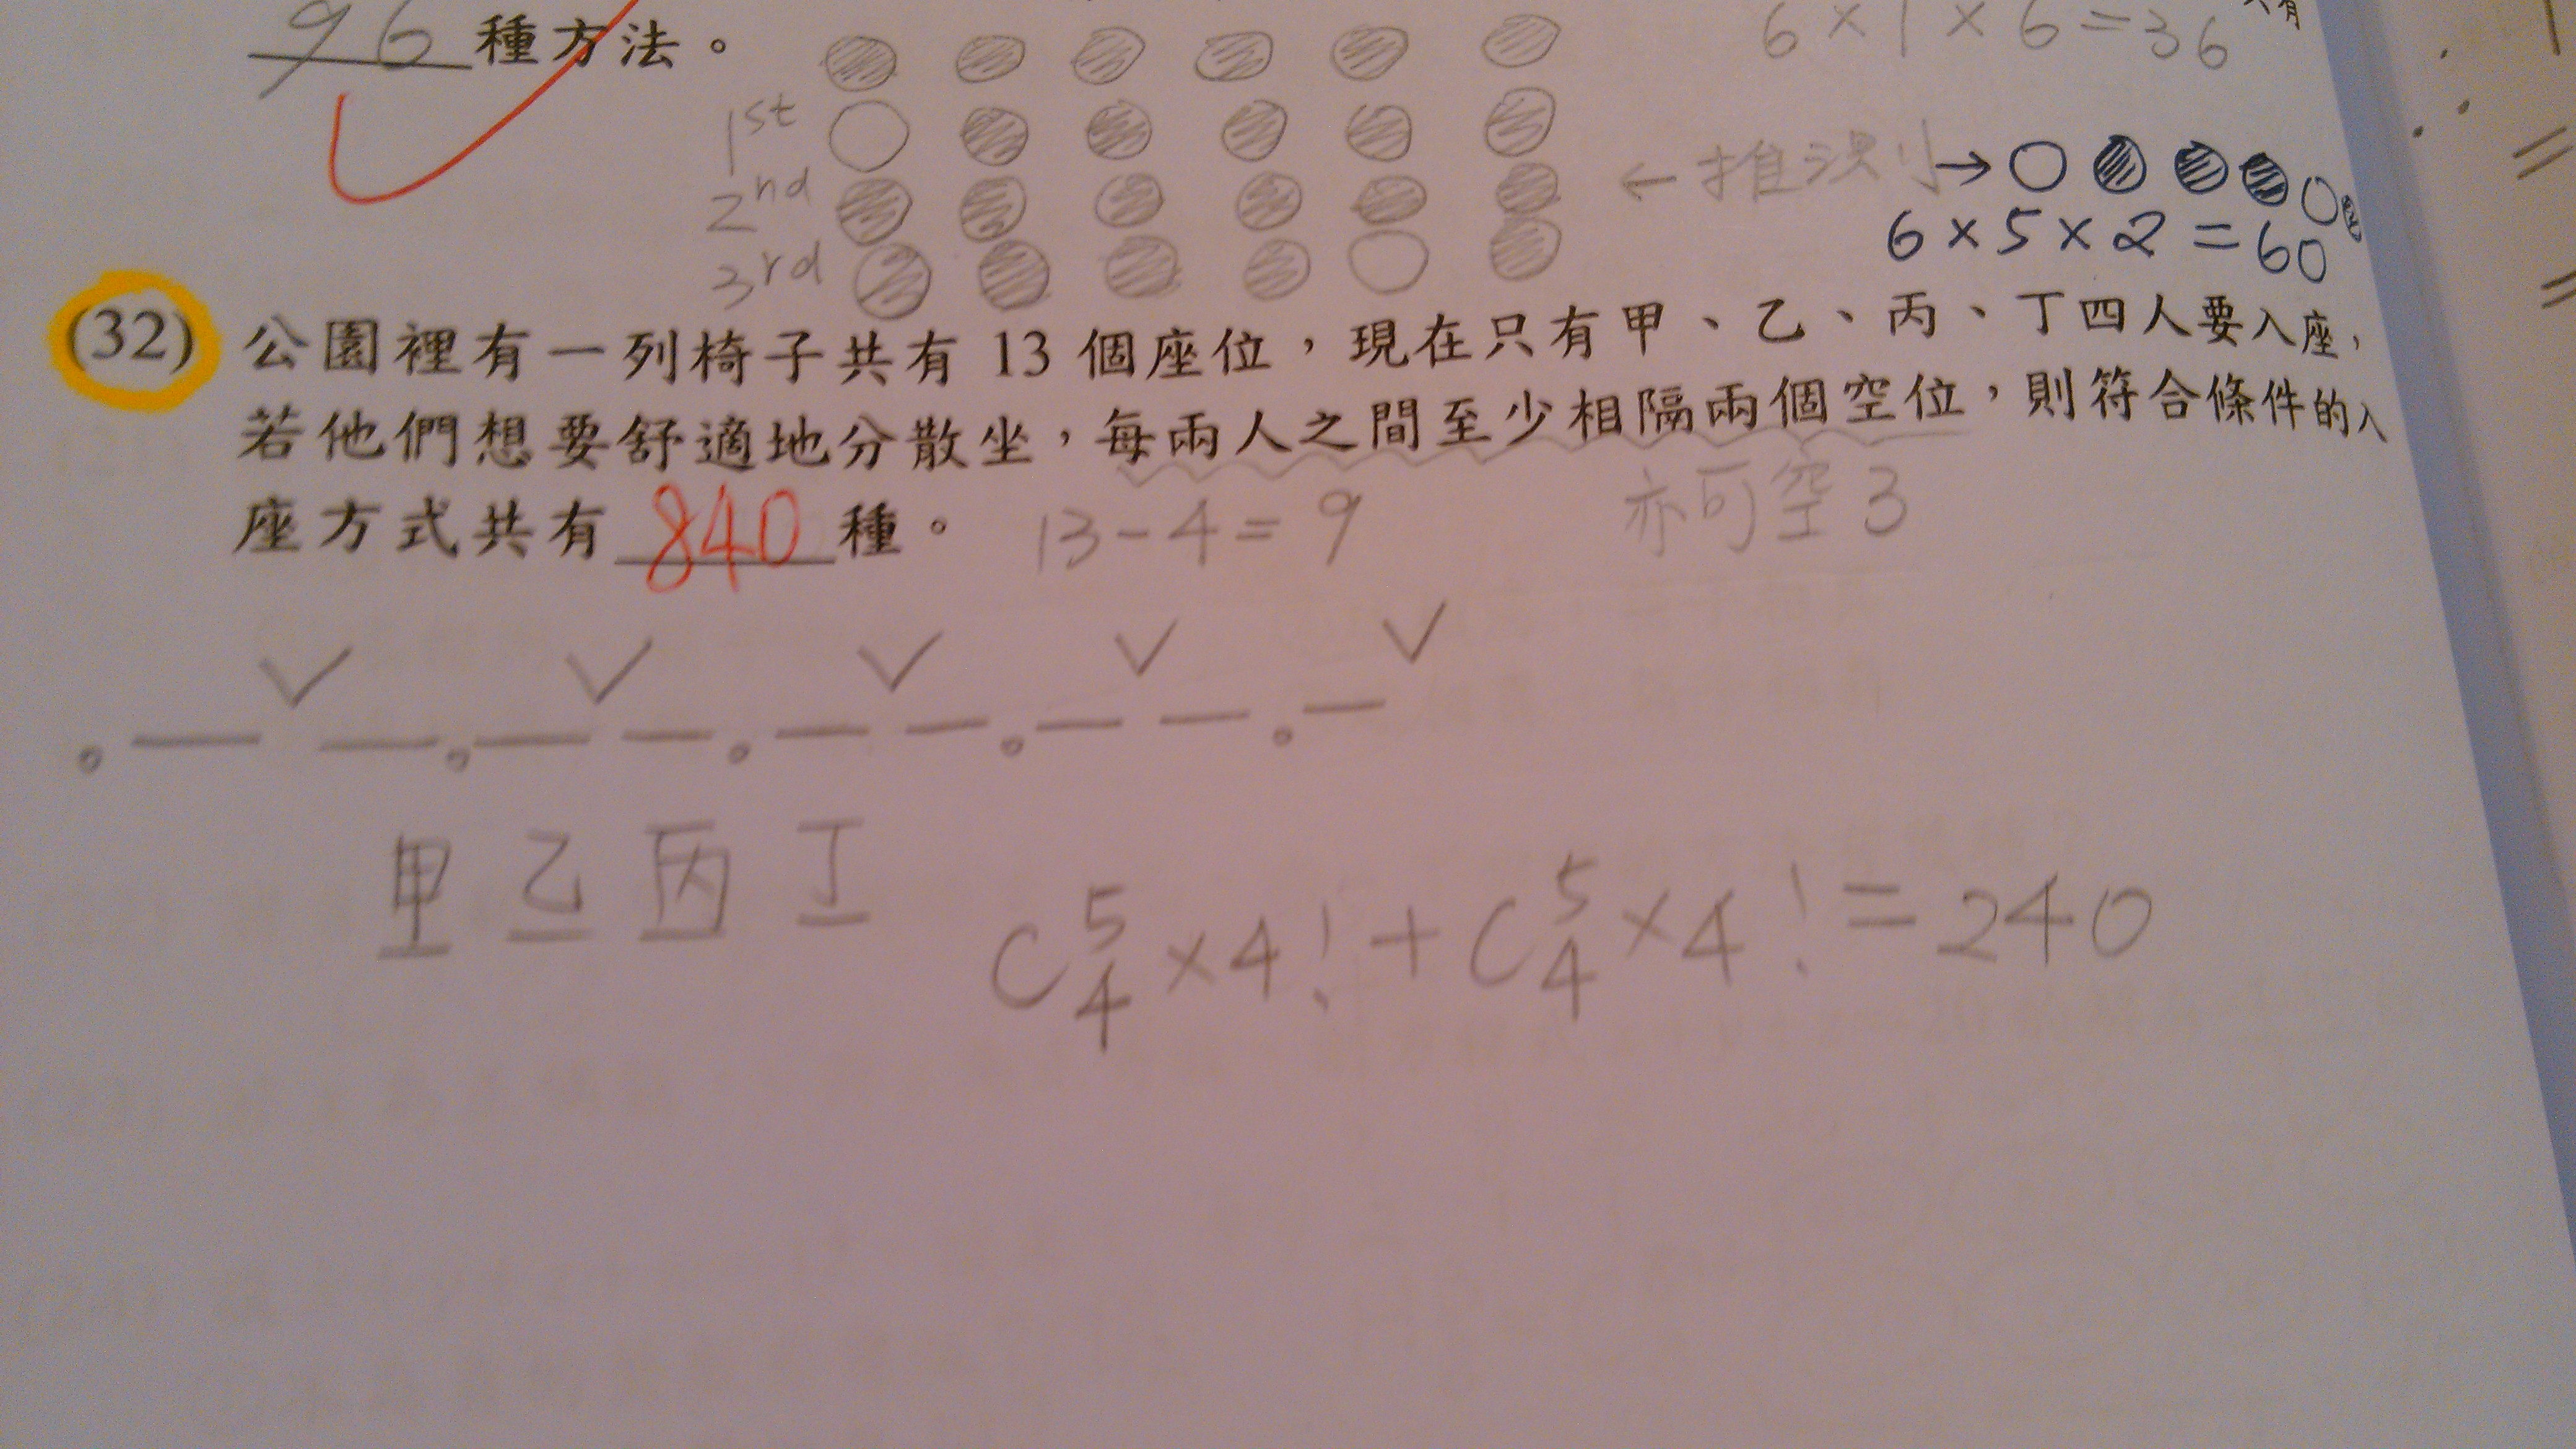 96 種方法。
6×1×6=36
1st
2nd
3rd
←
→
6×5×2=60
(32) 公園裡有一列椅子共有 13 個座位，現在只有甲、乙、丙、丁四人要入座，
若他們想要舒適地分散坐，每兩人之間至少相隔兩個空位，則符合條件的入
座方式共有 840 種。 13-4=9 亦可空3
甲 乙 丙 丁
C⁵₄×4!+C⁵₄×4!=240